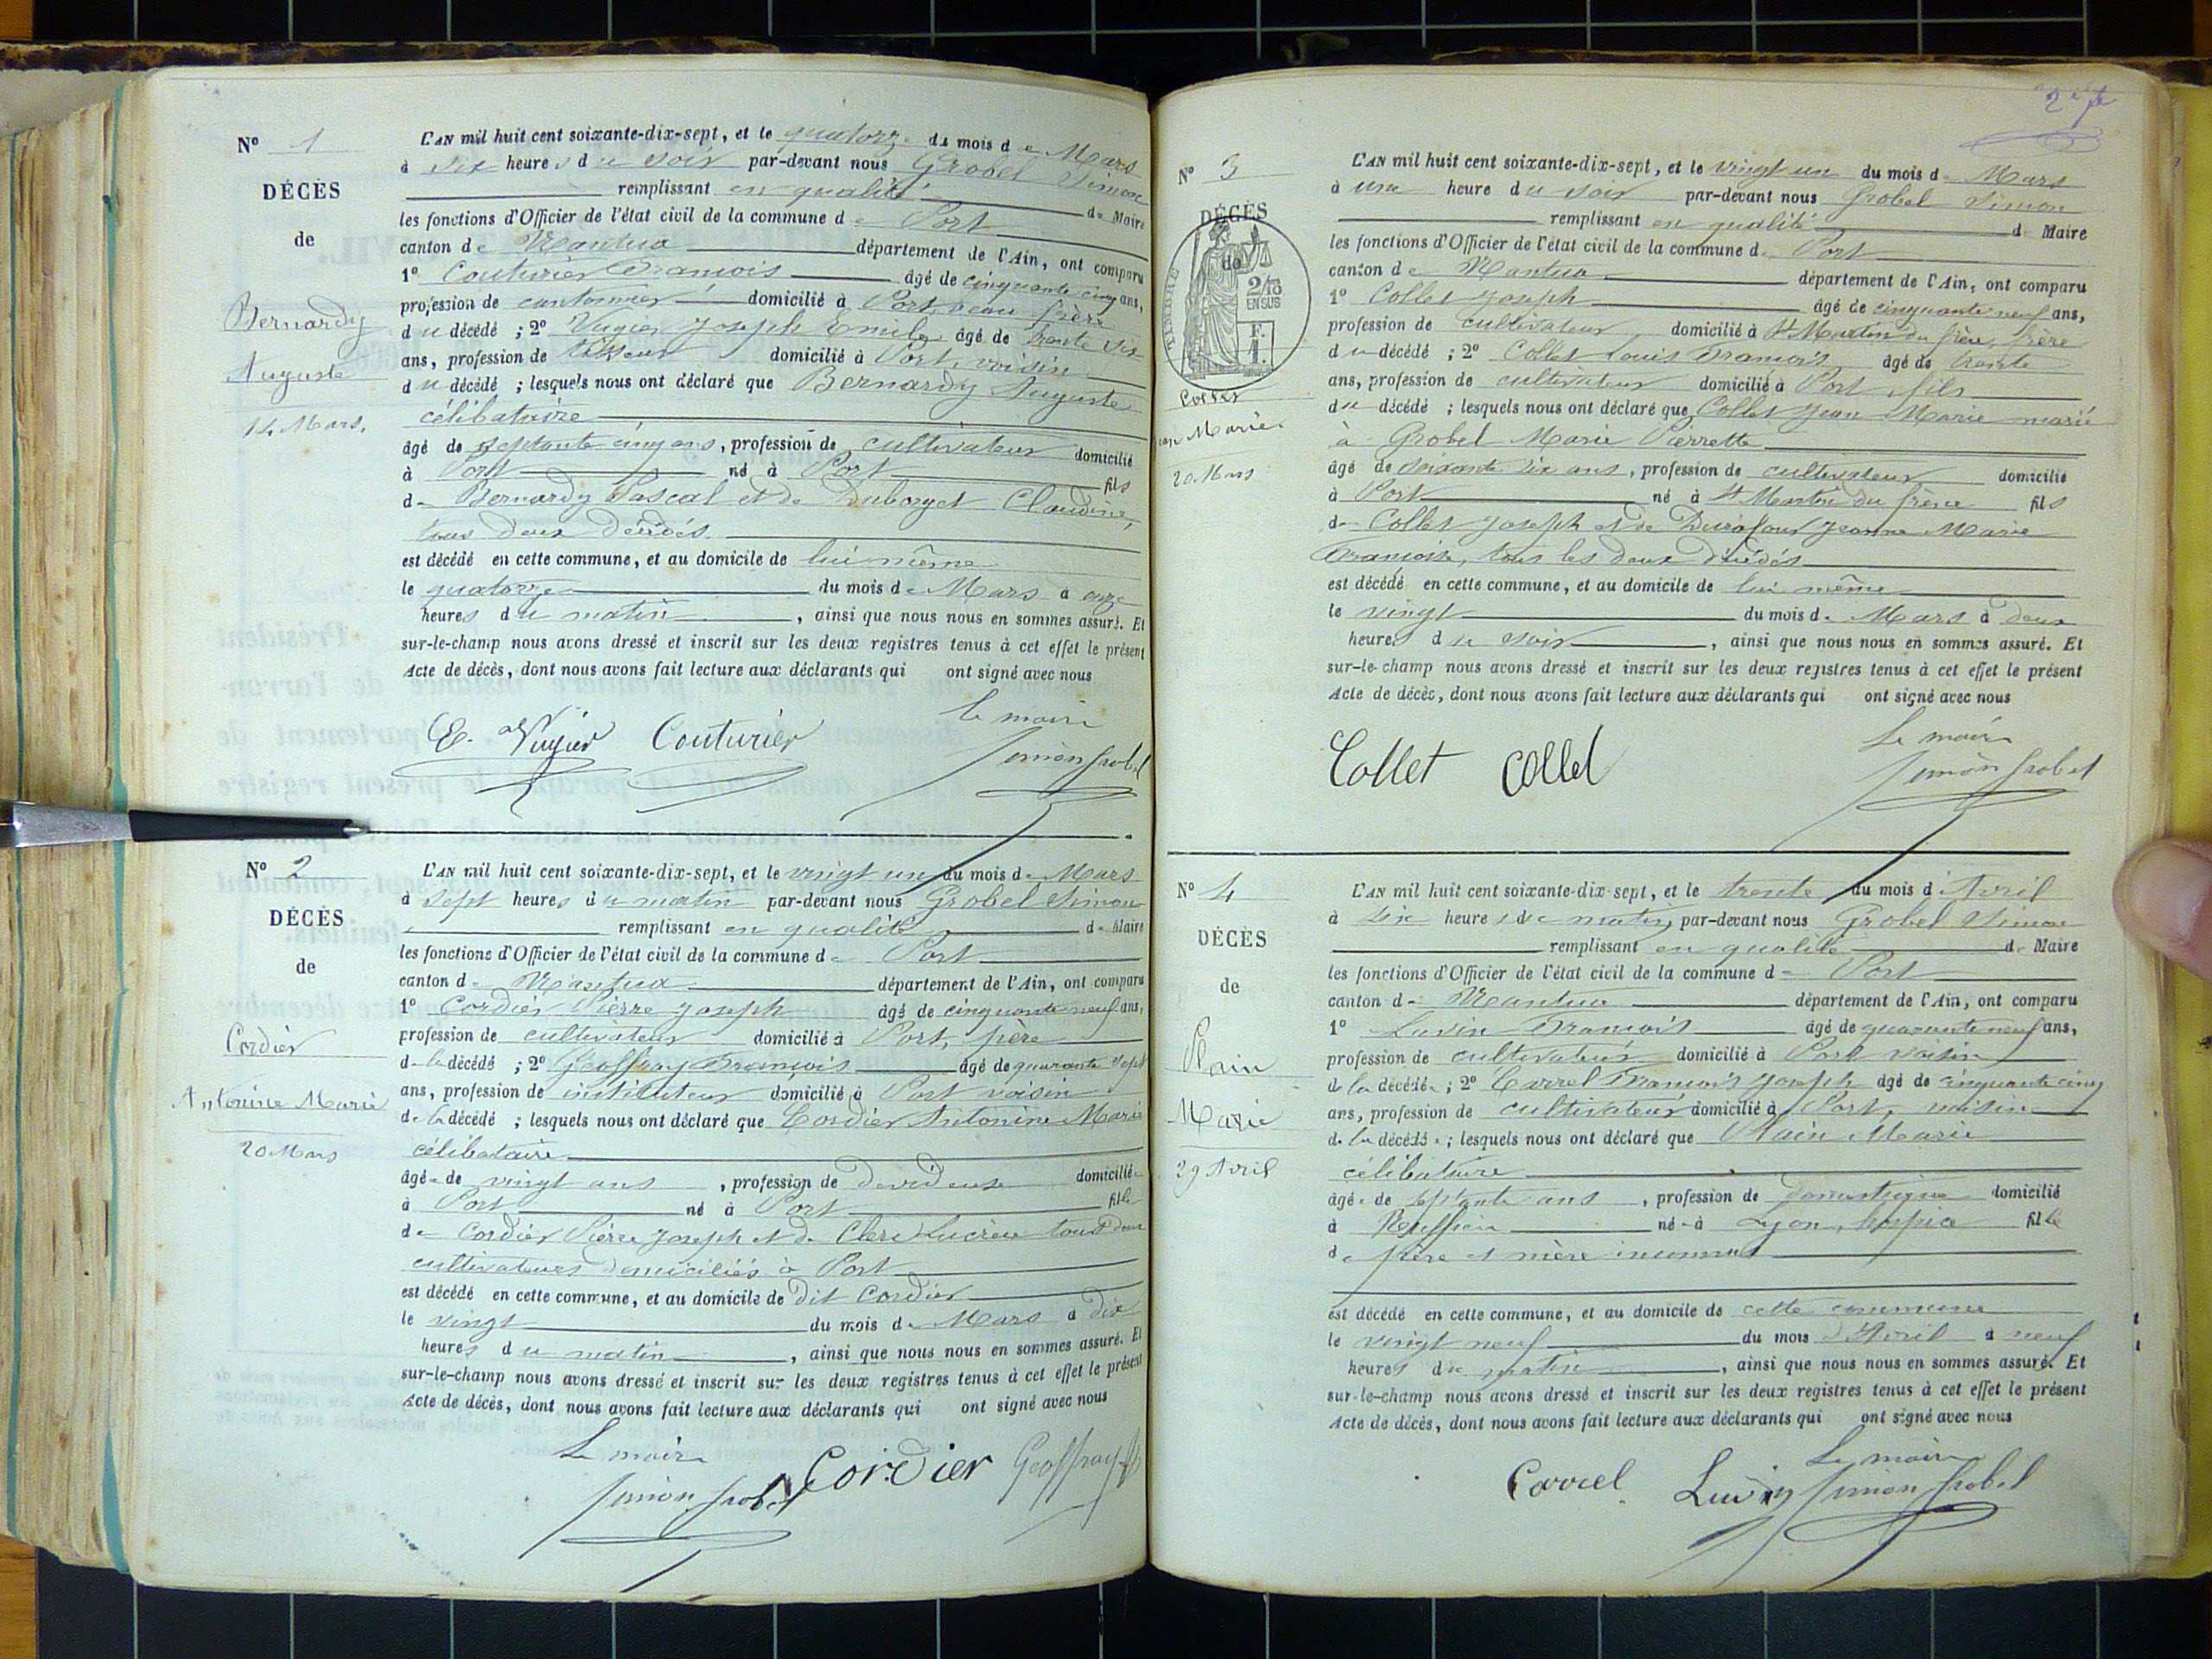 N° 1
DÉCÈS
de
Bernardy
Auguste
14 Mars.
L'AN mil huit cent soixante-dix-sept, et le quatorze du mois de Mars
à six heures du soir par-devant nous Grobel Simon
remplissant en qualité de Maire
les fonctions d'Officier de l'état civil de la commune de Port
canton de Nantua département de l'Ain, ont comparu
1° Couturier François âgé de cinquante cinq ans,
profession de cantonnier domicilié à Port, beau frère
du décédé ; 2° Vugier Joseph Emile âgé de trente six
ans, profession de tisseur domicilié à Port, voisin
du décédé ; lesquels nous ont déclaré que Bernardy Auguste
célibataire
âgé de septante cinq ans, profession de cultivateur domicilié
à Port né à Port fils
de Bernardy Pascal et de Duborget Claudine,
tous deux décédés.
est décédé en cette commune, et au domicile de lui même
le quatorze du mois de Mars à onze
heures du matin, ainsi que nous nous en sommes assuré. Et
sur-le-champ nous avons dressé et inscrit sur les deux registres tenus à cet effet le présent
Acte de décès, dont nous avons fait lecture aux déclarants qui ont signé avec nous
le maire
E. Vugier Couturier Simon Grobel
N° 2
DÉCÈS
de
Cordier
Antonine Marie
20 Mars
L'AN mil huit cent soixante-dix-sept, et le vingt un du mois de Mars
à sept heures du matin par-devant nous Grobel Simon
remplissant en qualité de Maire
les fonctions d'Officier de l'état civil de la commune de Port
canton de Nantua département de l'Ain, ont comparu
1° Cordier Pierre Joseph âgé de cinquante neuf ans,
profession de cultivateur domicilié à Port, père
de la décédé ; 2° Geoffray François âgé de quarante sept
ans, profession de instituteur domicilié à Port voisin
de la décédé ; lesquels nous ont déclaré que Cordier Antonine Marie
célibataire
âgée de vingt ans, profession de dévideuse domiciliée
à Port né à Port fille
de Cordier Pierre Joseph et de Clerc Lucrèce tous deux
cultivateurs domiciliés à Port
est décédé en cette commune, et au domicile de dit Cordier
le vingt du mois de Mars à dix
heures du matin, ainsi que nous nous en sommes assuré. Et
sur-le-champ nous avons dressé et inscrit sur les deux registres tenus à cet effet le présent
Acte de décès, dont nous avons fait lecture aux déclarants qui ont signé avec nous
Le maire
Simon Grobel Cordier Geoffray
N° 3
DÉCÈS
de
TIMBRE
2/10
EN SUS
F.
1.
Collet
Jean Marie
20 Mars
L'AN mil huit cent soixante-dix-sept, et le vingt un du mois de Mars
à une heure du soir par-devant nous Grobel Simon
remplissant en qualité de Maire
les fonctions d'Officier de l'état civil de la commune de Port
canton de Nantua département de l'Ain, ont comparu
1° Collet Joseph âgé de cinquante neuf ans,
profession de cultivateur domicilié à St Martin du frène, frère
du décédé ; 2° Collet Louis François âgé de trente
ans, profession de cultivateur domicilié à Port fils
du décédé ; lesquels nous ont déclaré que Collet Jean Marie marié
à Grobel Marie Pierrette
âgé de soixante six ans, profession de cultivateur domicilié
à Port né à St Martin du frène fils
de Collet Joseph et de Durafour Jeanne Marie
Françoise, tous les deux décédés
est décédé en cette commune, et au domicile de lui même
le vingt du mois de Mars à deux
heures du soir, ainsi que nous nous en sommes assuré. Et
sur-le-champ nous avons dressé et inscrit sur les deux registres tenus à cet effet le présent
Acte de décès, dont nous avons fait lecture aux déclarants qui ont signé avec nous
Le maire
Collet Collet Simon Grobel
N° 4
DÉCÈS
de
Plain
Marie
29 Avril
L'AN mil huit cent soixante-dix-sept, et le trente du mois d'Avril
à six heures du matin, par-devant nous Grobel Simon
remplissant en qualité de Maire
les fonctions d'Officier de l'état civil de la commune de Port
canton de Nantua département de l'Ain, ont comparu
1° Luvin François âgé de quarante neuf ans,
profession de cultivateur domicilié à Port voisin
de la décédée ; 2° Carrel François Joseph âgé de cinquante cinq
ans, profession de cultivateur domicilié à Port, voisin
de la décédée ; lesquels nous ont déclaré que Plain Marie
célibataire
âgée de septante ans, profession de domestique domicilié
à née à Lyon, hospice fille
de père et mère inconnus
est décédé en cette commune, et au domicile de cette commune
le vingt neuf du mois d'Avril à neuf
heures du matin, ainsi que nous nous en sommes assuré. Et
sur-le-champ nous avons dressé et inscrit sur les deux registres tenus à cet effet le présent
Acte de décès, dont nous avons fait lecture aux déclarants qui ont signé avec nous
Le maire
Carrel Luvin Simon Grobel